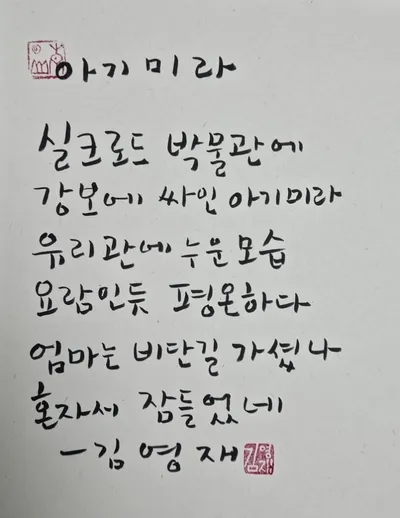 아기미라
실크로드 박물관에
강보에 싸인 아기미라
유리관에 누운 모습
요람인듯 평온하다
엄마는 비단길 가셨나
혼자서 잠들었네
-김영재
김영재